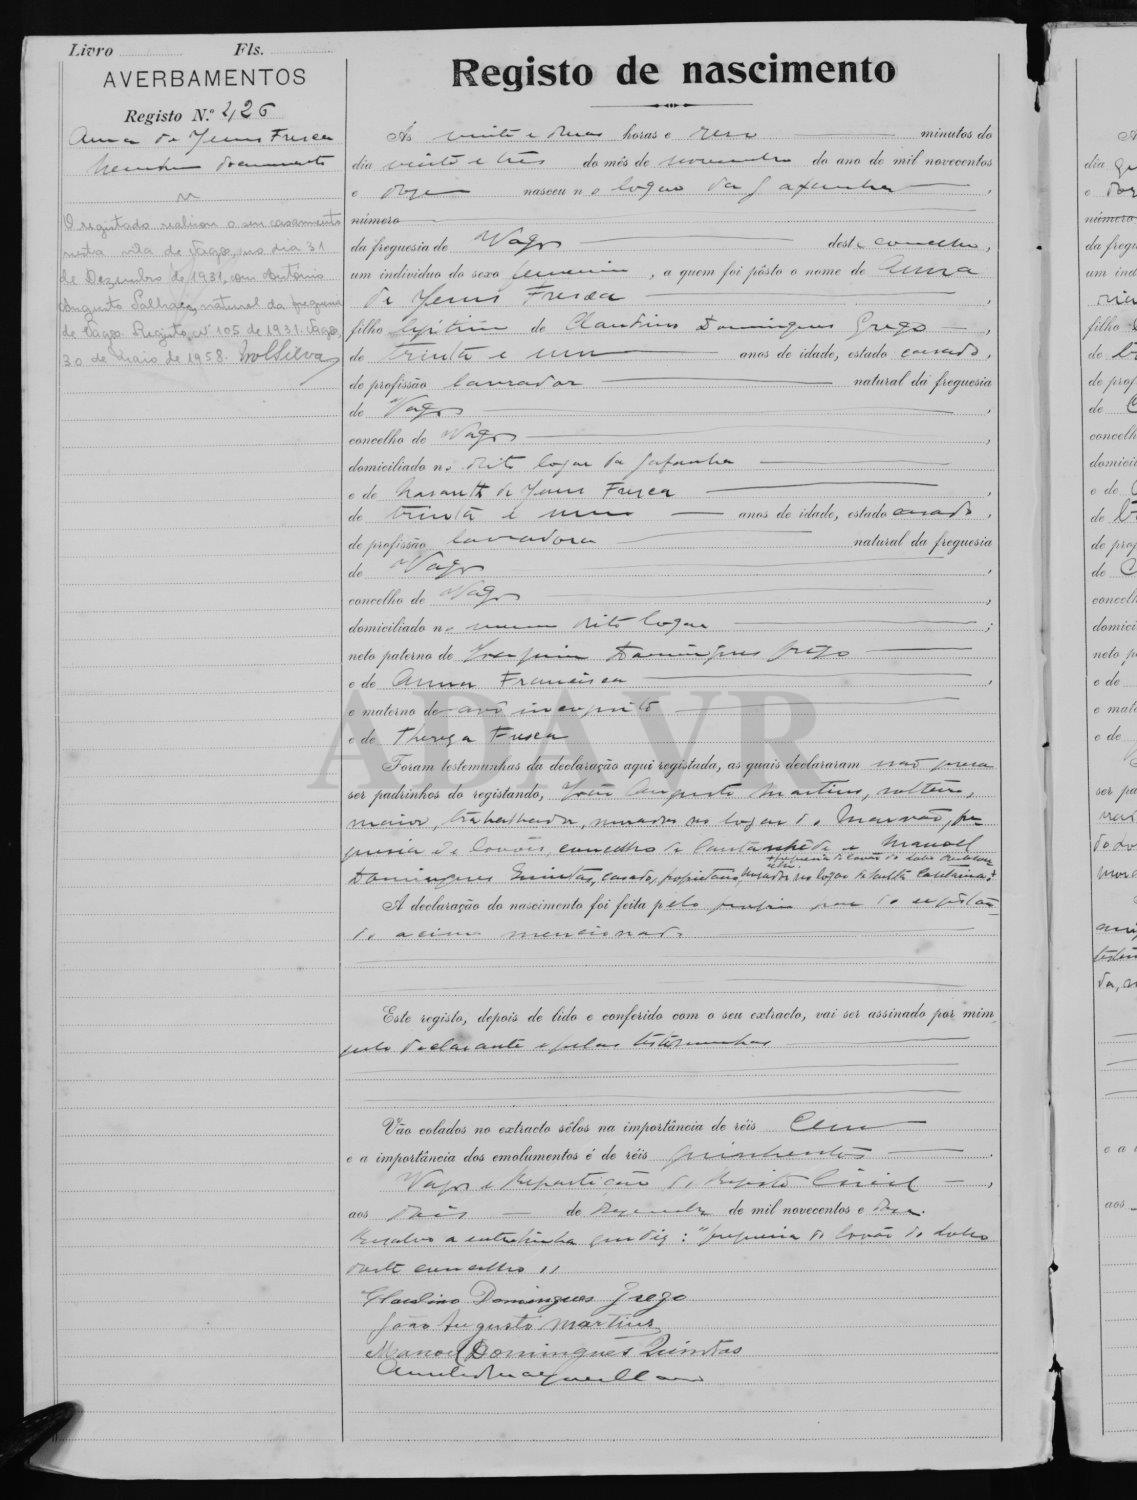 Livro Fls.
AVERBAMENTOS
Registo N.º 426
Anna de Jesus Fresca
Nenhum documento
O registado realizou o seu casamento
nesta vila de Vagos, no dia 31
de Dezembro de 1931, com António
Augusto natural da freguesia
de Vagos. Registo nº 105 de 1931. Vagos,
30 de Maio de 1958.
Registo de nascimento
Ás vinte e duas horas e zero minutos do
dia vinte e três do mês de novembro do ano de mil novecentos
e doze nasceu no logar da Gafanha,
número
da freguesia de Vagos deste concelho,
um indivíduo do sexo feminino, a quem foi pôsto o nome de Anna
de Jesus Fresca,
filho legitimo de Claudino Domingues Grego,
de trinta e um anos de idade, estado casado,
de profissão lavrador natural da freguesia
de Vagos,
concelho de Vagos,
domiciliado no dito logar da Gafanha
e de de Jesus Fresca,
de trinta e um anos de idade, estado casado,
de profissão lavradora natural da freguesia
de Vagos,
concelho de Vagos,
domiciliado no mesmo dito logar;
neto paterno de Joaquim Domingues Grego
e de Anna Francisca,
e materno de avô incognito
e de Thereza Fresca
Foram testemunhas da declaração aqui registada, as quais declararam não para
ser padrinhos do registando, João Augusto Martins, solteiro,
maior, trabalhador, morador no logar do fre
guesia de Covões, concelho de Cantanhede e Manoel
+ freguesia de Covão do Lobo deste concelho.
Domingues Quintas, casado, proprietario, morador no logar de Santa Catarina. +
A declaração do nascimento foi feita pelo proprio pae do registan
do acima mencionado.
Este registo, depois de lido e conferido com o seu extracto, vai ser assinado por mim,
pelo declarante e pelas testemunhas
Vão colados no extracto sêlos na importância de réis Cem
e a importância dos emolumentos é de réis quinhentos.
Vagos e Repartição do Registo Civil,
aos dois de dezembro de mil novecentos e doze.
Resalvo a entrelinha que diz: "freguesia de Covão do Lobo
deste concelho"
Claudino Domingues Grego
João Augusto Martins
Manoel Domingues Quintas
ADAVR